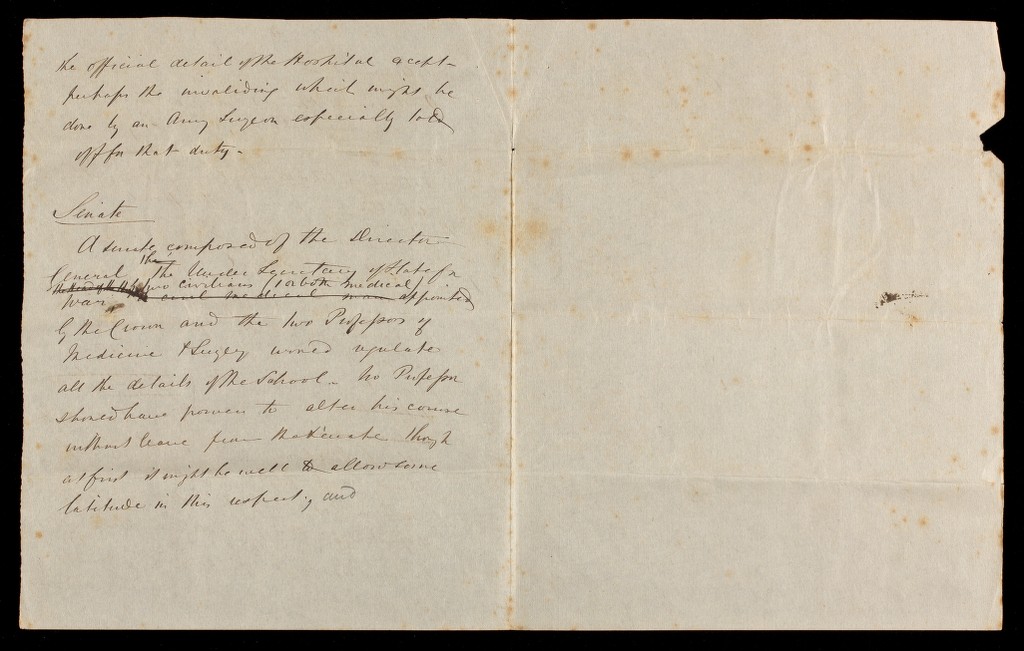 the official detail of the Hospital except
perhaps the invaliding which might be
done by an Army Surgeon especially told
off for that duty.
Senate
A senate composed of the Director
General the Under Secretary of State for
two civilians (1 or both medical)
War civil medical man appointed
by the Crown and the two Professors of
Medicine & Surgery would regulate
all the details of the School. No Professor
should have power to alter his course
without leave from the Senate though
at first it might be well to allow some
latitude in this respect, and